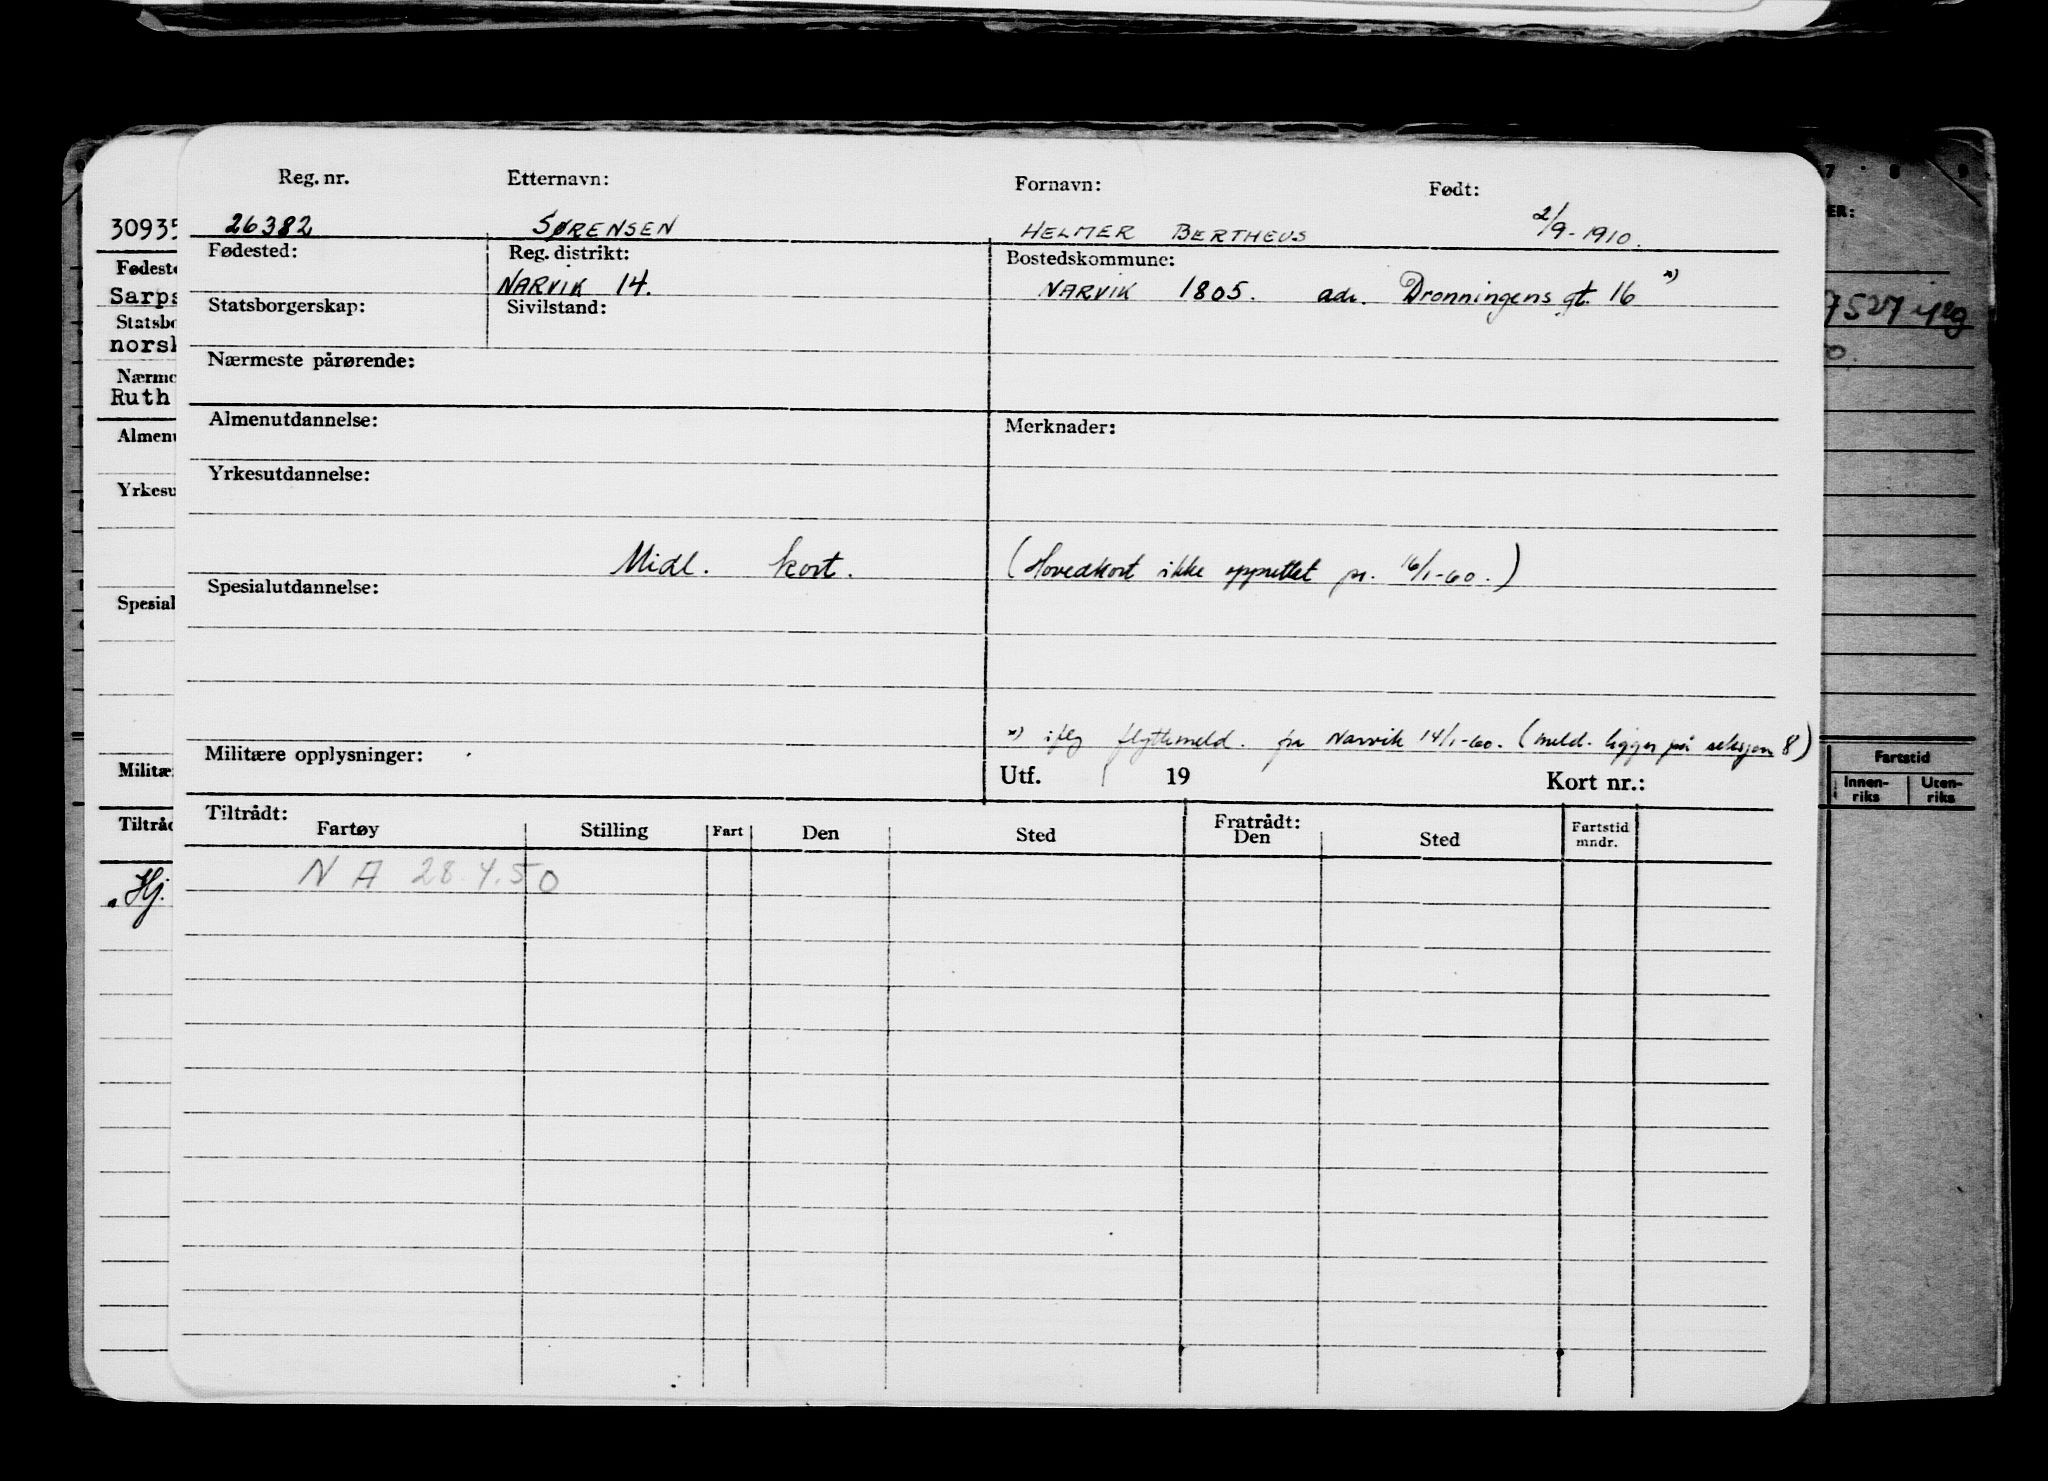 Reg. nr. Etternavn: Fornavn: Født:
26382 SØRENSEN HELMER BERTHEUS 2/9-1910.
Fødested: Reg. distrikt: Bostedskommune:
NARVIK 14. NARVIK 1805. adr. Dronningens gt. 16 x)
Statsborgerskap: Sivilstand:
Nærmeste pårørende:
Almenutdannelse: Merknader:
Yrkesutdannelse:
Midl. kort. (Hovedkort ikke opprettet pr. 16/1-60.)
Spesialutdannelse:
x) iflg flyttemeld. fra Narvik 14/1-60. (meld. ligger på seksjon 8)
Militære opplysninger: Utf. 19 Kort nr.:
Tiltrådt: Fratrådt:
Fartøy Stilling Fart Den Sted Den Sted Fartstid mndr.
N A 28.4.50
30935
Fødeste
Sarps
Statsbo
norsk
Nærme
Ruth
Almenu
Yrkesu
Spesial
Militæ
Tiltråd
Hj.
7 8 9
ER:
Fartstid
Innen-riks Uten-riks